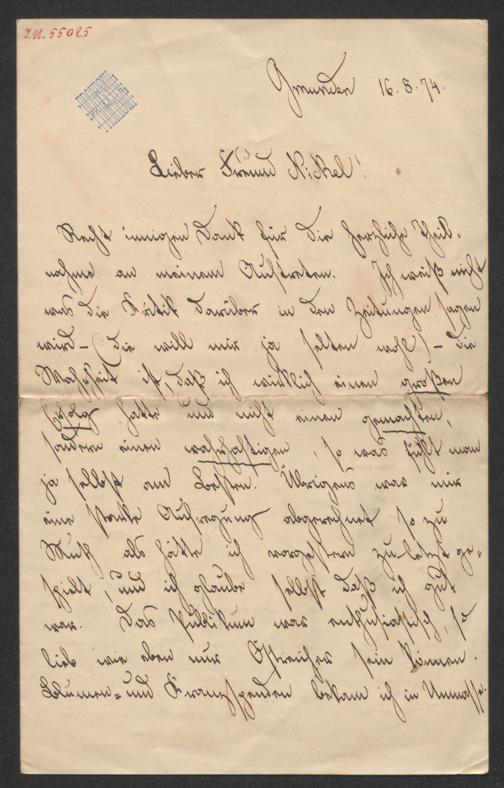 I.N. 55085
Gmunden 16.8.74.
Lieber Freund Nickel!
Recht innigen Dank für die herzliche Theil-
nahme an meinem Auftreten. Ich weiß nicht
was die Kritik darüber in den Zeitungen sagen
wird – (die will mir ja selten wohl) – die
Wahrheit ist daß ich wirklich einen großen
Erfolg hatte und nicht einen gemachten,
sondern einen wahrhaftigen, so was fühlt man
ja selbst am Besten. Übrigens war mir
eine starke Aufregung abgerechnet so zu
Muth als hätte ich vorgestern zuletzt ge-
spielt, und ich glaube selbst daß ich gut
war. Das Publikum war enthusiastisch, so
lieb wie eben nur Östreicher sein können.
Blumen- und Kranzspenden bekam ich in Unmasse.